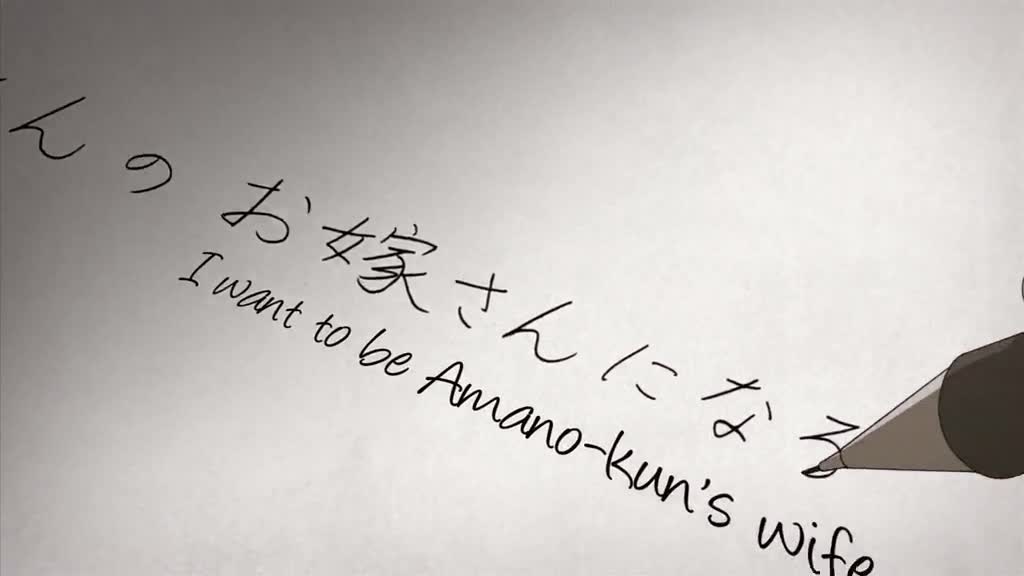 んのお嫁さんになる
I want to be Amano-kun's wife